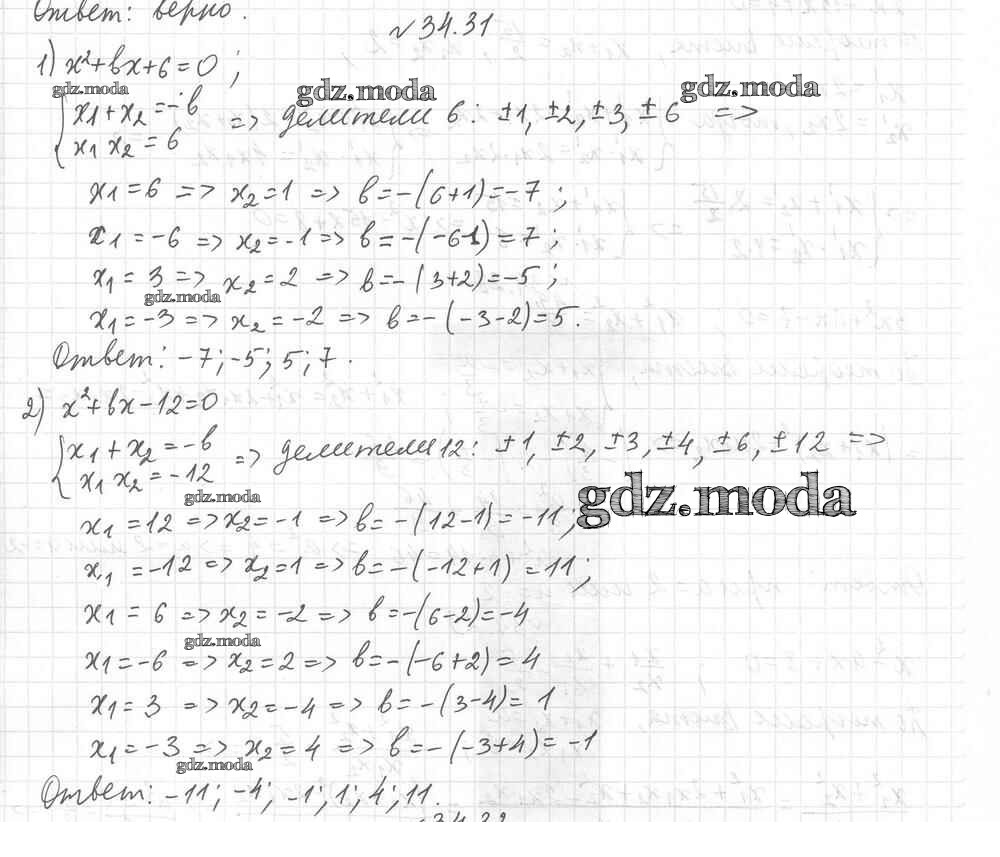 Ответ: верно.
№34.31
1) x²+bx+6=0;
gdz.moda
gdz.moda
gdz.moda
{x1+x2=-b
x1 x2=6
=> делители 6: ±1, ±2, ±3, ±6 =>
x1=6 => x2=1 => b=-(6+1)=-7;
x1=-6 => x2=-1 => b=-(-6-1)=7;
x1=3 => x2=2 => b=-(3+2)=-5;
gdz.moda
x1=-3 => x2=-2 => b=-(-3-2)=5.
Ответ: -7; -5; 5; 7.
2) x²+bx-12=0
{x1+x2=-b
x1 x2=-12
=> делители 12: ±1, ±2, ±3, ±4, ±6, ±12 =>
gdz.moda
gdz.moda
x1=12 => x2=-1 => b=-(12-1)=-11;
x1=-12 => x2=1 => b=-(-12+1)=11;
x1=6 => x2=-2 => b=-(6-2)=-4
gdz.moda
x1=-6 => x2=2 => b=-(-6+2)=4
x1=3 => x2=-4 => b=-(3-4)=1
x1=-3 => x2=4 => b=-(-3+4)=-1
gdz.moda
Ответ: -11; -4; -1; 1; 4; 11.